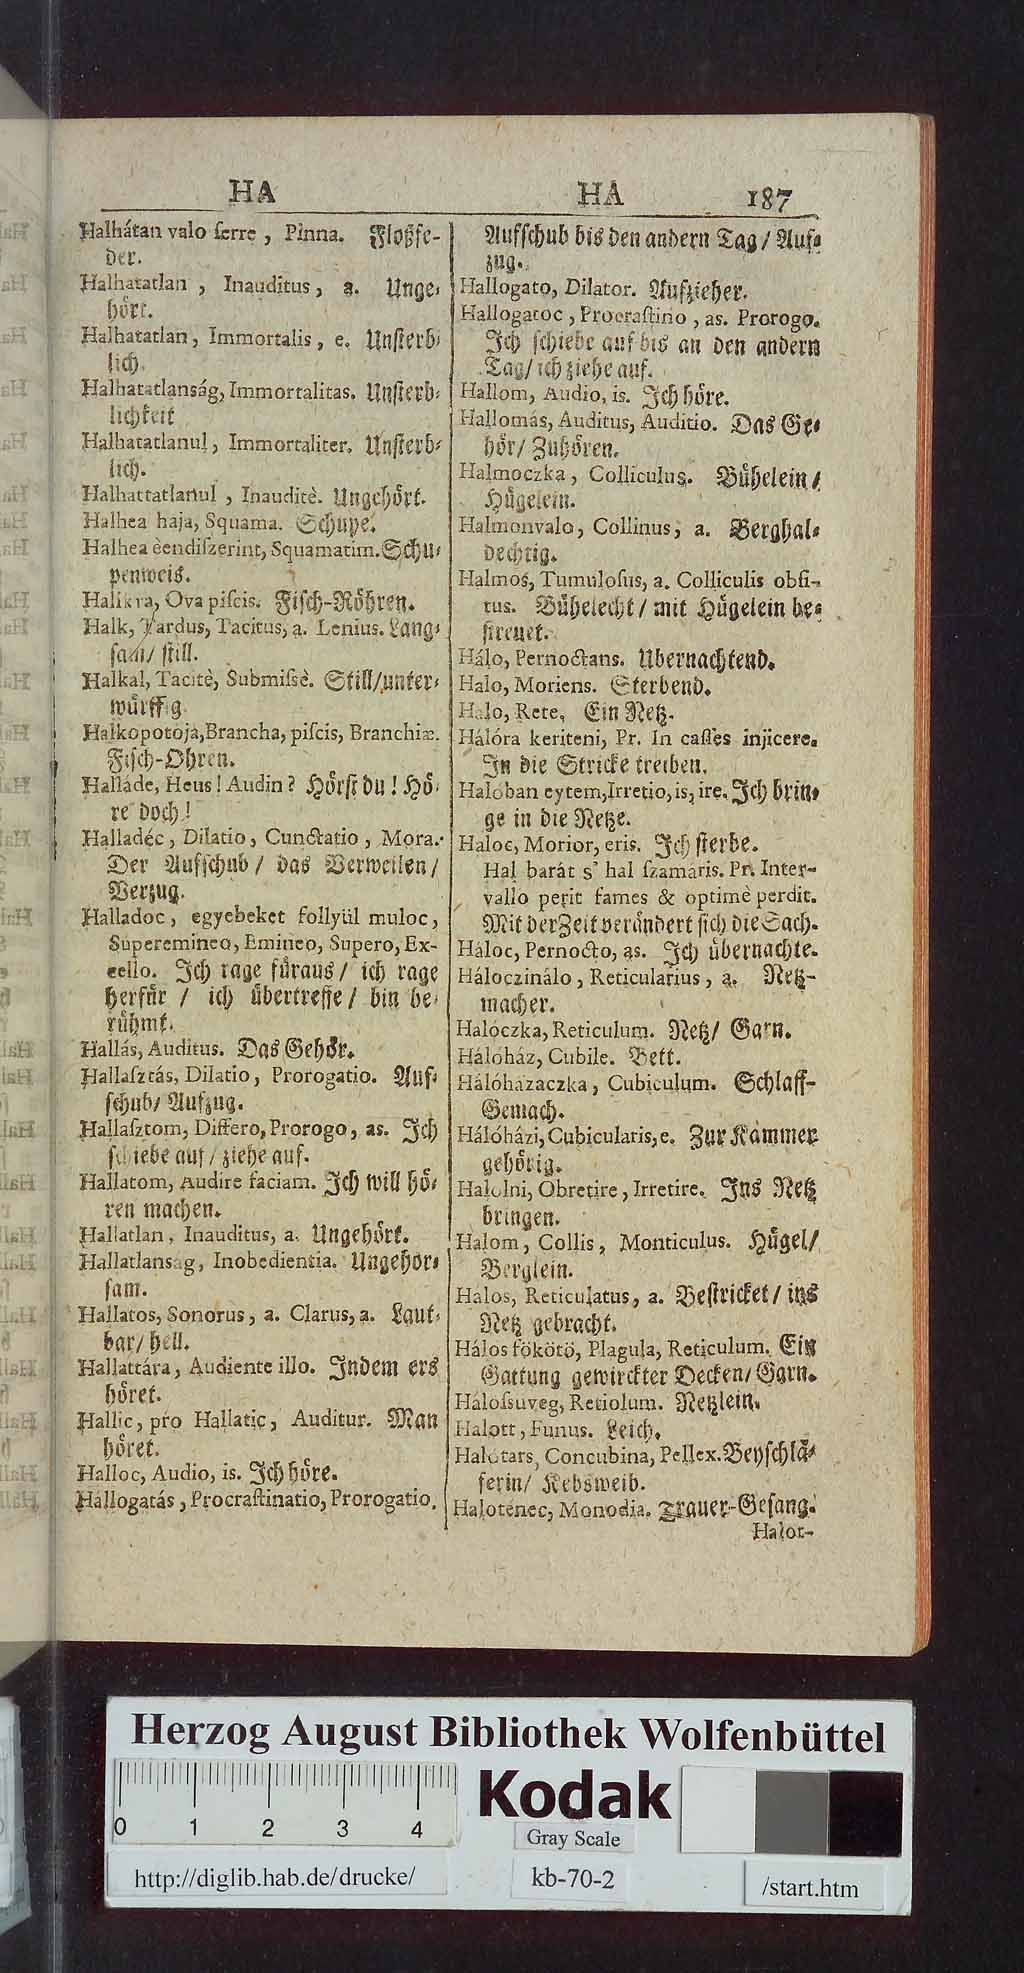 HA
HA 187
Halhátan valo ſerre, Pinna. Floßfe-
der.
Halhatatlan, Inauditus, a. Unge-
hört.
Halhatatlan, Immortalis, e. Unſterb-
lich.
Halhatatlanság, Immortalitas. Unſterb-
lichkeit
Halhatatlanul, Immortaliter. Unſterb-
lich.
Halhattatlanul, Inauditè. Ungehört.
Halhea haja, Squama. Schupe.
Halhea èendiſzerint, Squamatim. Schu-
penweis.
Halikra, Ova piſcis. Fiſch-Röhren.
Halk, Tardus, Tacitus, a. Lenius. Lang-
ſam/ ſtill.
Halkal, Tacitè, Submiſsè. Still/unter-
würffig.
Halkopotojà, Brancha, piſcis, Branchiæ.
Fiſch-Ohren.
Halláde, Heus! Audin? Hörſt du! Hö-
re doch!
Halladéc, Dilatio, Cunctatio, Mora.
Der Aufſchub/ das Verweilen/
Verzug.
Halladoc, egyebeket follyül muloc,
Superemineo, Emineo, Supero, Ex-
cello. Ich rage füraus/ ich rage
herfür / ich übertreffe/ bin be-
rühmt.
Hallás, Auditus. Das Gehör.
Hallaſztás, Dilatio, Prorogatio. Auf-
ſchub/ Aufzug.
Hallaſztom, Differo, Prorogo, as. Ich
ſchiebe auf/ ziehe auf.
Hallatom, Audire faciam. Ich will hö-
ren machen.
Hallatlan, Inauditus, a. Ungehört.
Hallatlansag, Inobedientia. Ungehor-
ſam.
Hallatos, Sonorus, a. Clarus, a. Laut-
bar/ hell.
Hallattára, Audiente illo. Indem ers
höret.
Hallic, pro Hallatic, Auditur. Man
höret.
Halloc, Audio, is. Ich höre.
Hállogatás, Procraſtinatio, Prorogatio.
Aufſchub bis den andern Tag/ Auf-
zug.
Hallogato, Dilator. Aufzieher.
Hallogatoc, Procraſtino, as. Prorogo.
Ich ſchiebe auf bis an den andern
Tag/ ich ziehe auf.
Hallom, Audio, is. Ich höre.
Hallomás, Auditus, Auditio. Das Ge-
hör/ Zuhören.
Halmoczka, Colliculus. Bühelein/
Hügelein.
Halmonvalo, Collinus, a. Berghal-
dechtig.
Halmos, Tumuloſus, a. Colliculis obſi-
tus. Bühelecht/ mit Hügelein be-
ſtreuet.
Hálo, Pernoctans. Ubernachtend.
Halo, Moriens. Sterbend.
Halo, Rete, Ein Netz.
Hálóra keriteni, Pr. In caſſes injicere.
In die Stricke treiben.
Haloban eytem, Irretio, is, ire. Ich brin-
ge in die Netze.
Haloc, Morior, eris. Ich ſterbe.
Hal barát s' hal ſzamáris. Pr. Inter-
vallo perit fames & optimè perdit.
Mit der Zeit verändert ſich die Sach.
Háloc, Pernocto, as. Ich übernachte.
Háloczinálo, Reticularius, a. Netz-
macher.
Halóczka, Reticulum. Netz/ Garn.
Hálóház, Cubile. Bett.
Hálóházaczka, Cubiculum. Schlaff-
Gemach.
Hálóházi, Cubicularis, e. Zur Kammer
gehörig.
Halolni, Obretire, Irretire. Ins Netz
bringen.
Halom, Collis, Monticulus. Hügel/
Berglein.
Hálos, Reticulatus, a. Beſtricket/ ins
Netz gebracht.
Hálos fökötö, Plagula, Reticulum. Ein
Gattung gewirckter Decken/ Garn.
Hálóſsuveg, Retiolum. Netzlein.
Halott, Funus. Leich.
Halótars, Concubina, Pellex. Beyſchlä-
ferin/ Kebsweib.
Halotenec, Monodia. Trauer-Geſang.
Halot-
Herzog August Bibliothek Wolfenbüttel
0 1 2 3 4
Kodak
Gray Scale
http://diglib.hab.de/drucke/
kb-70-2
/start.htm